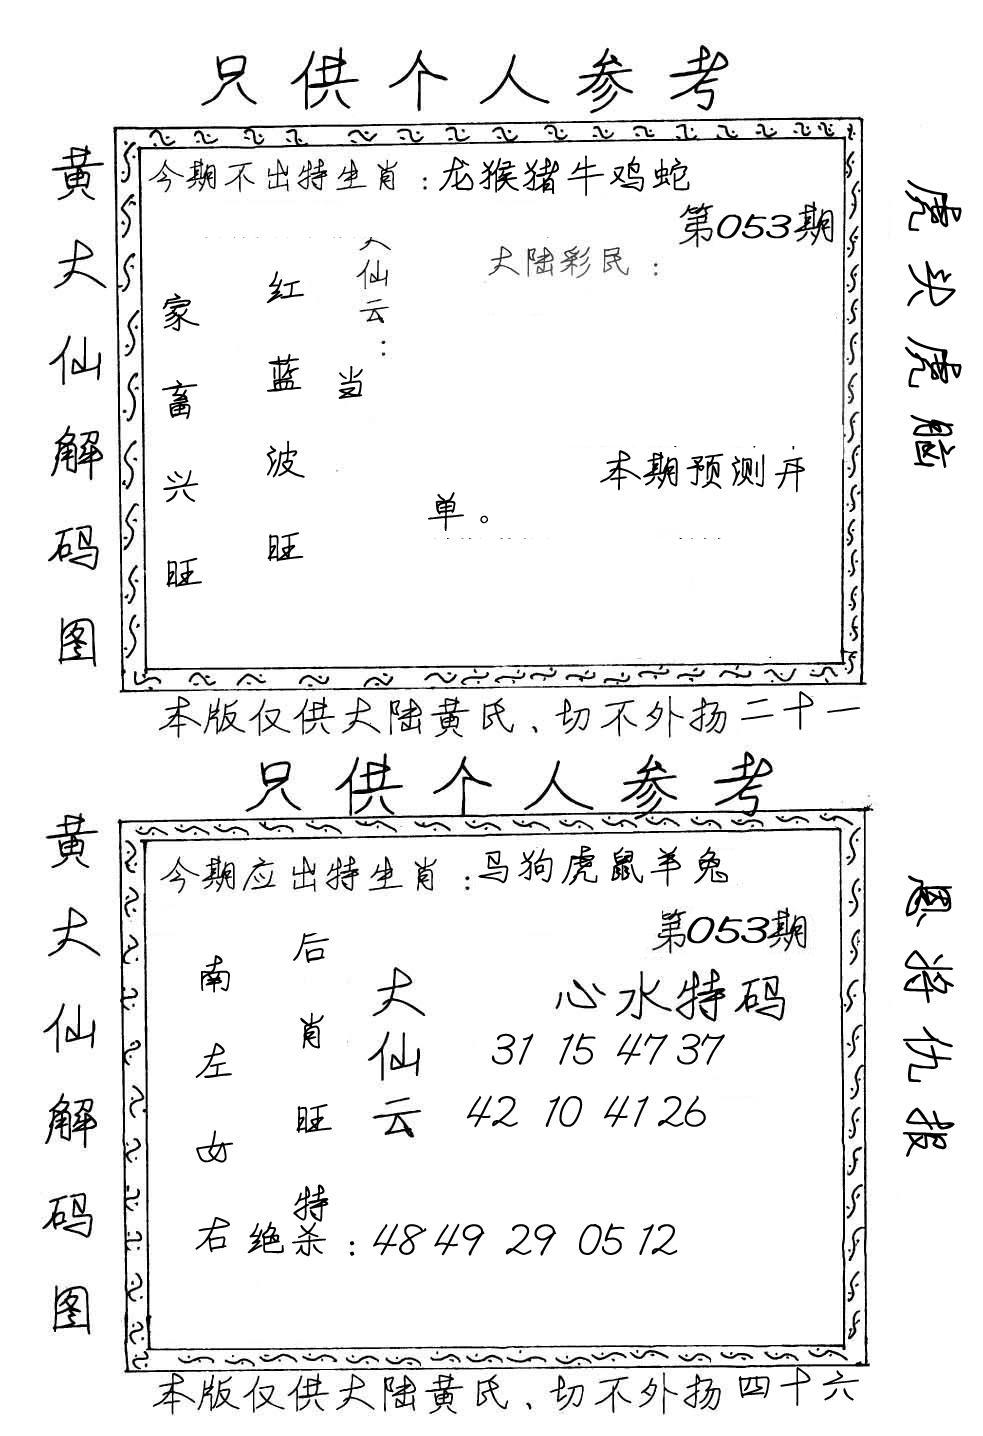 只供个人参考
黄大仙解码图
今期不出特生肖：龙猴猪牛鸡蛇
第053期
家畜兴旺
红蓝波旺
大仙云：
当
大陆彩民：
本期预测开
单。
虎头虎脑
本版仅供大陆黄氏、切不外扬二十一
只供个人参考
黄大仙解码图
今期应出特生肖：马狗虎鼠羊兔
第053期
南左女右
后肖旺特
大仙云
心水特码
31 15 47 37
42 10 41 26
绝杀：48 49 29 05 12
恩将仇报
本版仅供大陆黄氏、切不外扬四十六